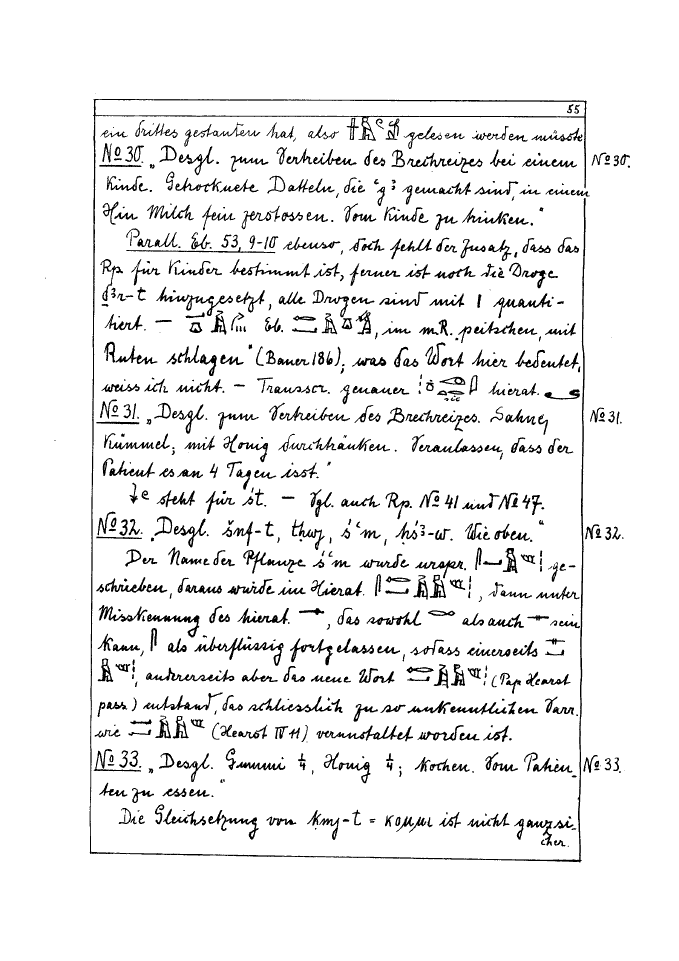 55
ein drittes gestanden hat, also gelesen werden müsste
No 30. „Desgl. zum Vertreiben des Brechreizes bei einem No 30.
Kinde. Getrocknete Datteln, die ʿgꜣ gemacht sind, in einem
Hin Milch fein zerstossen. Vom Kinde zu trinken."
Parall. Eb. 53, 9-10 ebenso, doch fehlt der Zusatz, dass das
Rp für Kinder bestimmt ist, ferner ist noch die Droge
dꜣr-t hinzugesetzt, alle Drogen sind mit I quanti-
tiert. — Eb. , im m.R. peitschen, mit
Ruten schlagen" (Bauer 186); was das Wort hier bedeutet,
weiss ich nicht. — Transscr. genauer hierat.
No 31. „Desgl. zum Vertreiben des Brechreizes. Sahne,
Kümmel; mit Honig durchtränken. Veranlassen, dass der No 31.
Patient es an 4 Tagen isst."
steht für śt. — Vgl. auch Rp. No 41 und No 47.
No 32. „Desgl. šnf-t, tḥwj, śʿm, ḥśꜣ-w. Wie oben." No 32.
Der Name der Pflanze śʿm wurde urspr. ge-
schrieben, daraus wurde im Hierat. , dann unter
Misskennung des hierat. , das sowohl als auch sein
kann, als überflüssig fortgelassen, sodass einerseits
, andererseits aber das neue Wort (Pap Hearst
pass.) entstand, das schliesslich zu so unkenntlichen Varr.
wie (Hearst IV 11) verunstaltet worden ist.
No 33. „Desgl. Gummi ¼, Honig ¼; kochen. Vom Patien- No 33.
ten zu essen."
Die Gleichsetzung von kmj-t = κόμμι ist nicht ganz si-
cher.